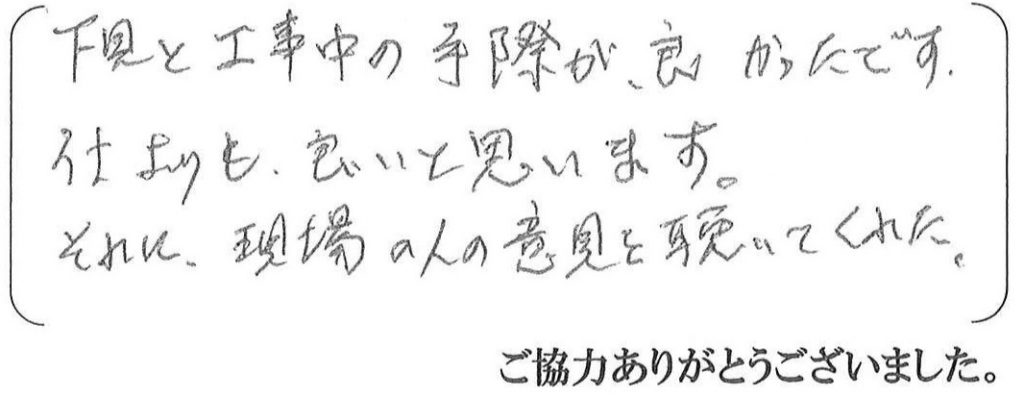 下見と工事中の手際が、良かったです.
仕上りも、良いと思います。
それに、現場の人の意見を聴いてくれた。
ご協力ありがとうございました。